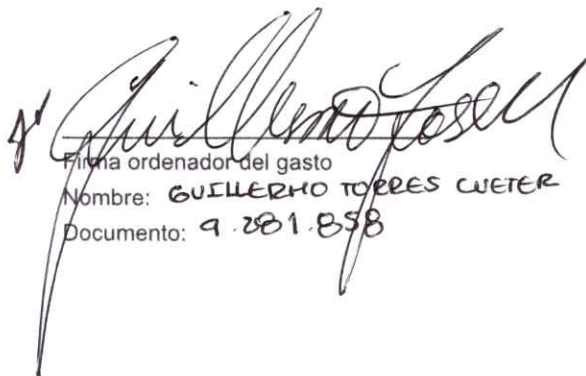 Guillermo Torres
Firma ordenador del gasto
Nombre: GUILLERMO TORRES CUETER
Documento: 9.281.858